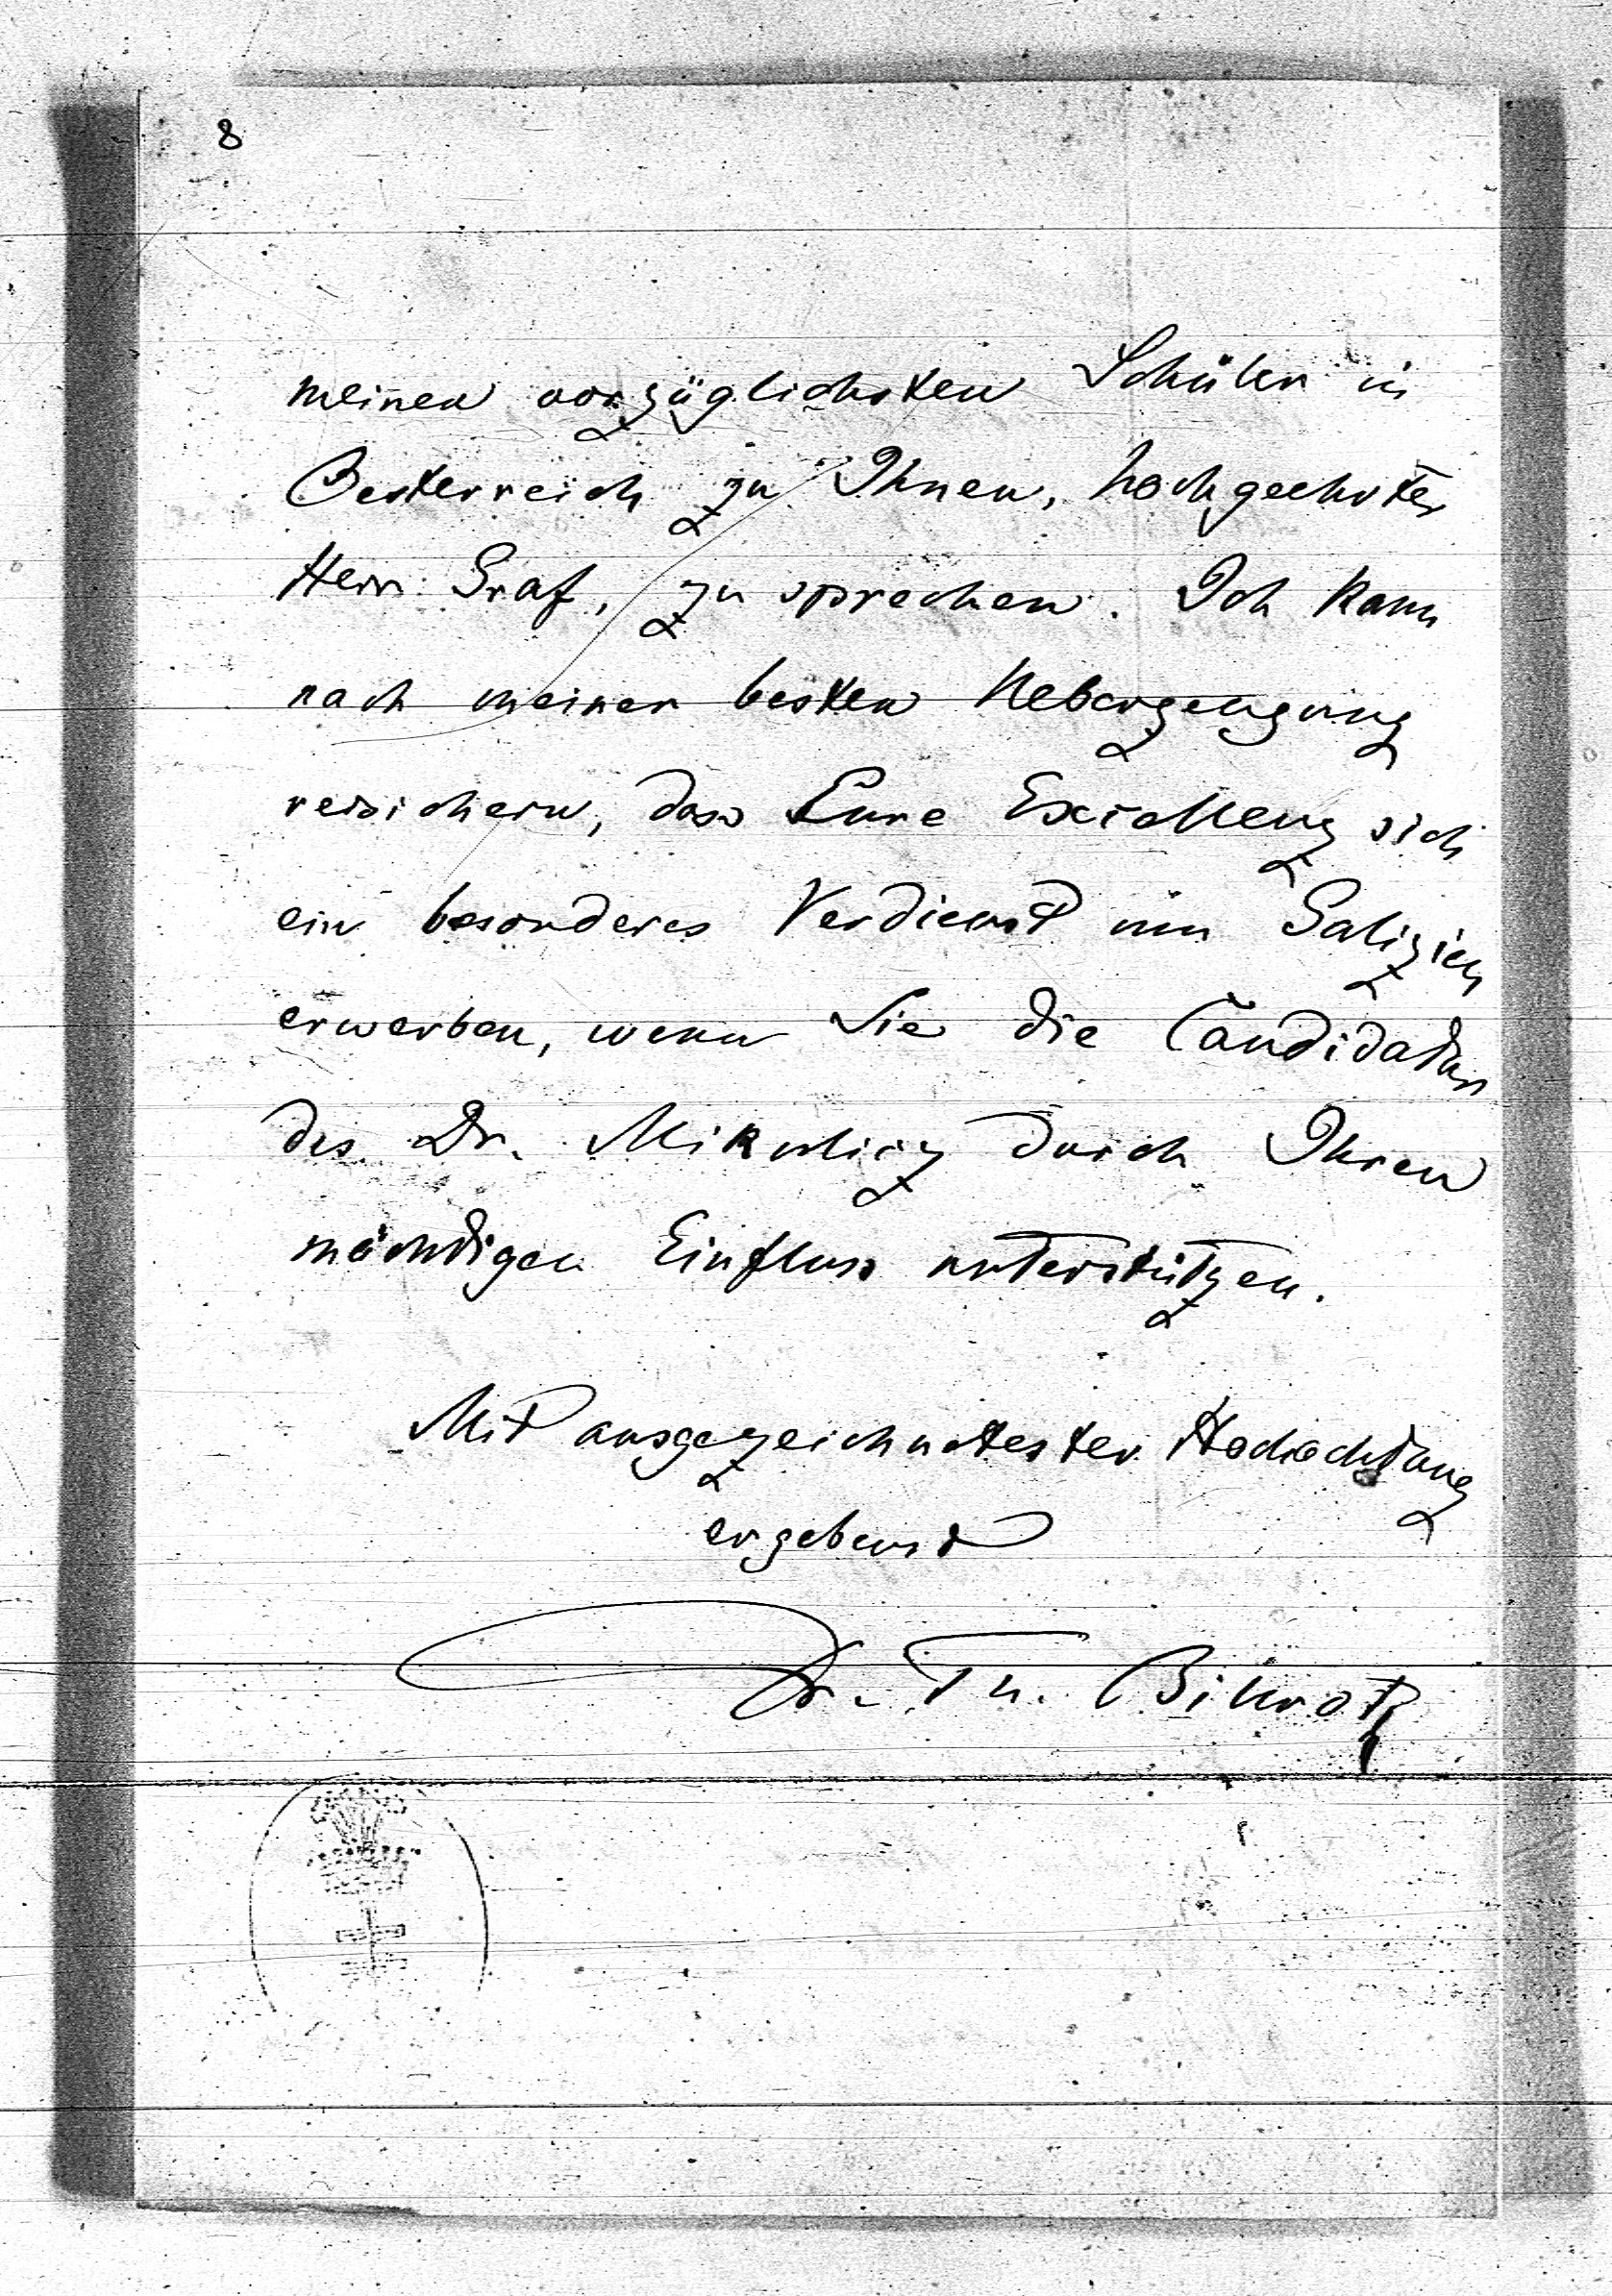 8
meinen vorzüglichsten Schüler in
Oesterreich zu Ihnen, hochgeehrter
Herr Graf, zu sprechen. Ich kann
nach meiner besten Ueberzeugung
versichern, dass Eure Excellenz sich
ein besonderes Verdienst um Galizien
erwerben, wenn Sie die Candidatur
des Dr. Mikulicz durch Ihren
mächtigen Einfluss unterstützen.
Mit ausgezeichnetester Hochachtung
ergebenst
Dr. Th. Billroth